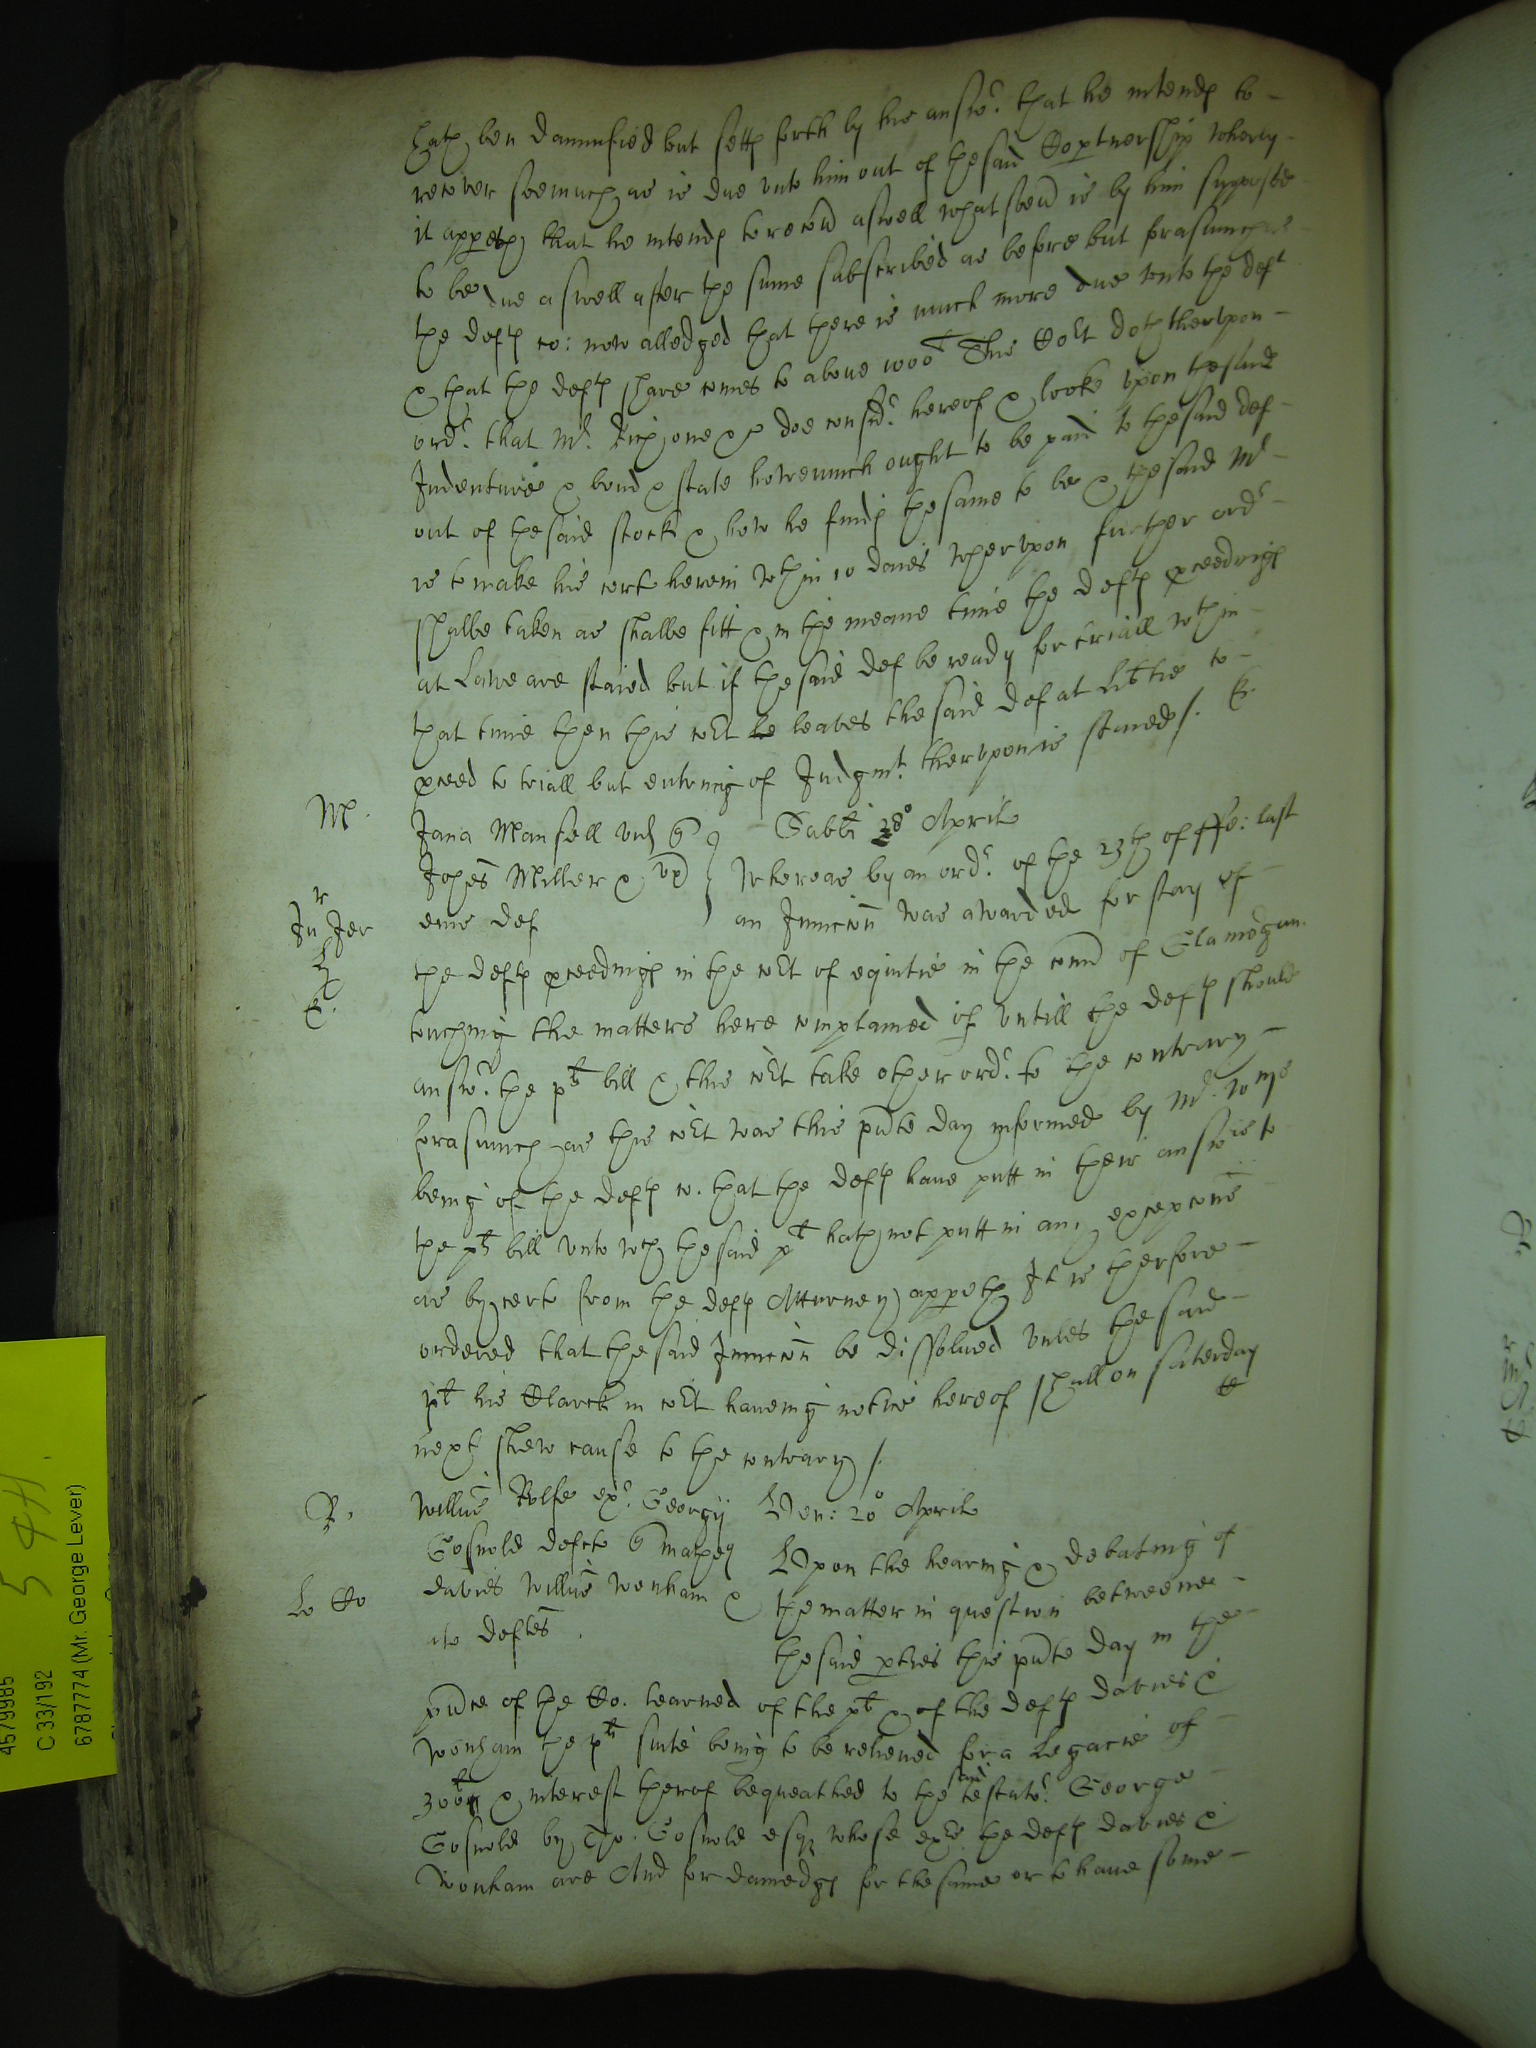 hath ben damnified but setth forth by his answr. that he intends to
recover soe much as is due vnto him out of the said Copartnership wherby
it appeth that he intends to recover aswell what soever is by him supposed
to be due aswell after the sume subscribed as before but forasmuch as
the defts co: now alledged that there is much more due vnto the deft
& that the defts share comes to aboue 1000l This Cort doth thervpon
ordr. that Mr. Rich one &c doe considr. hereof & looke vpon the said
Indenture & bond & state howe much ought to be paid to the said def
out of the said stock & how he finds the same to be & the said Mr
is to make his cert herein wthin 10 daies whervpon further ordr
shalbe taken as shalbe fitt & in the meane time the defts pceedings
at Lawe are staied but if the said def be ready for triall wthin
that time then this cort leaves the said def at libtie to
pceed to triall but entring of Judgmt. thervpon is staied /. Ex.
M.
Jana Mansell vid q Sabbti 28o Aprilis
Johes Miller & vx Whereas by an ordr. of the 23th of ffe: last
eius def an Iniunccon was awarded for stay of
Jn Jer
Ex.
the defts pceedings in the cort of equitie in the county of Glamorgan
touching the matters here complained of vntill the defts should
answr. the plts bill & this cort take other ordr. to the contrary
forasmuch as this cort was this pnte day informed by Mr.
being of the defts co. that the defts haue putt in their answere to
the plts bill vnto wch the said plt hath not putt in any excepcons
as by cert from the defts Atturney appeth It is therfore
ordered that the said Iniunccon be dissolued vnles the said
plt his Clarck in cort haueing notice hereof shall on saterday
next shew cause to the contrary /.
R.
Willus Rolfe exr. Georgij Ven: 20o Aprilis
Gosnold defcti q
Davies Willus Wonham & Vpon the hearing & debating of
als deftes. the matter in question betweene
Le Co
the said pties this pnte day in the
pnce of the Co. learned of the plt & of the defts Davies &
Wonham the plts suite being to be releiued for a Legacie of
300l & interest therof bequeathed to the said testator. George
Gosnold by Tho. Gosnold esqr whose exrs the defts Davies &
Wonham are And for damedgs for the same or to haue some
54H.
4579985
C 33/192
6787774 (Mr. George Lever)